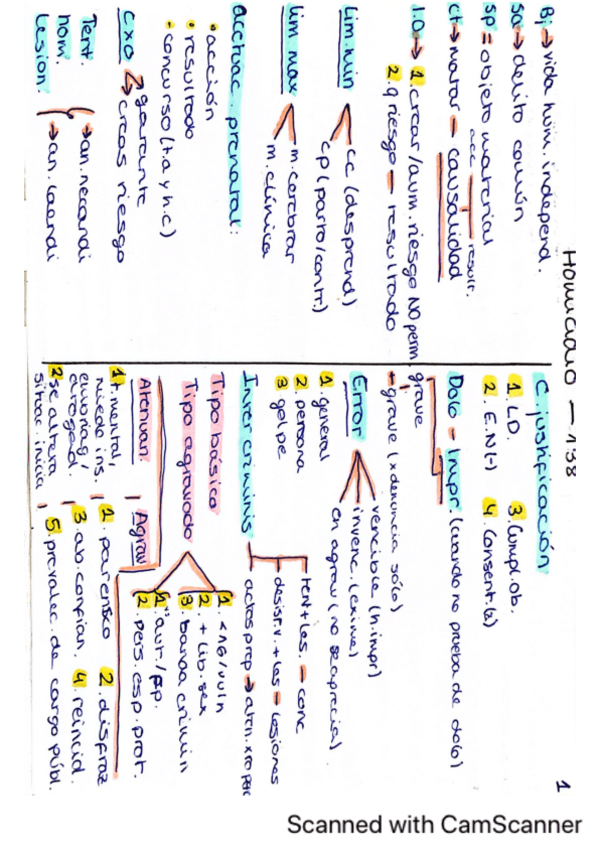 Homicidio - 138
1
Bj → vida hum. independ.
Sa → delito común
sp = objeto material
acc — result.
ct → matar - causalidad
I.O → 1. crear/aum. riesgo NO perm
2. q riesgo - resultado
Lim. min
cc (desprend)
cp (parto/contr.)
Lim max
m. cerebrar
m. clínica
actuac. prenatal:
• acción
• resultado
• concurso (t.a y h.c)
CXO
garante
creas riesgo
Tent. hom.
→ an. necandi
Lesion.
→ an. laendi
C. justificación
1. L.D. 3. Cumpl. ob.
2. E.N (-) 4. Consent. (2)
Dolo - Impr. (cuando no prueba de dolo)
grave
- grave (x denuncia sólo)
Error
vencible (h. impr)
invenc. (exime)
en agrav (no se aprecia)
1. general
2. persona
3. golpe
Inter criminis
tent + les. - conc
desist. v. + les = lesiones
actos prep →
Tipo básico
Tipo agravado
1 <16/vuln
2. + lib. sex
3. banda crimin
1. aut./pp.
2. pers. esp. prot.
Atenuan.
1. t. mental,
miedo ins.
embriag/
drogad.
2 se altera
situac. inicia
Agrav
1. parentsco 2. disfraz
3. ab. confian. 4. reincid.
5. prevalec. de cargo públ.
Scanned with CamScanner